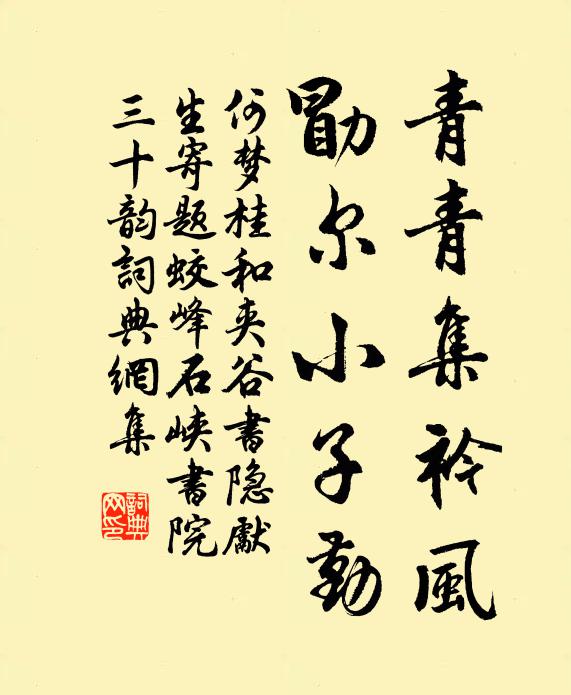 青青集衿風
勖尔小子勤
何梦桂和夹谷書隐獻
生寄题蛟峰石峡書院
三十韵詞典網集
詞典
网印